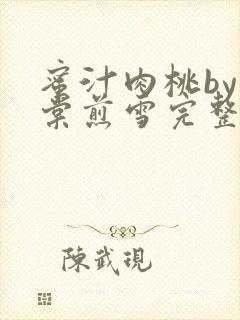 蜜汁肉桃by
棠煎雪完整
陳武現